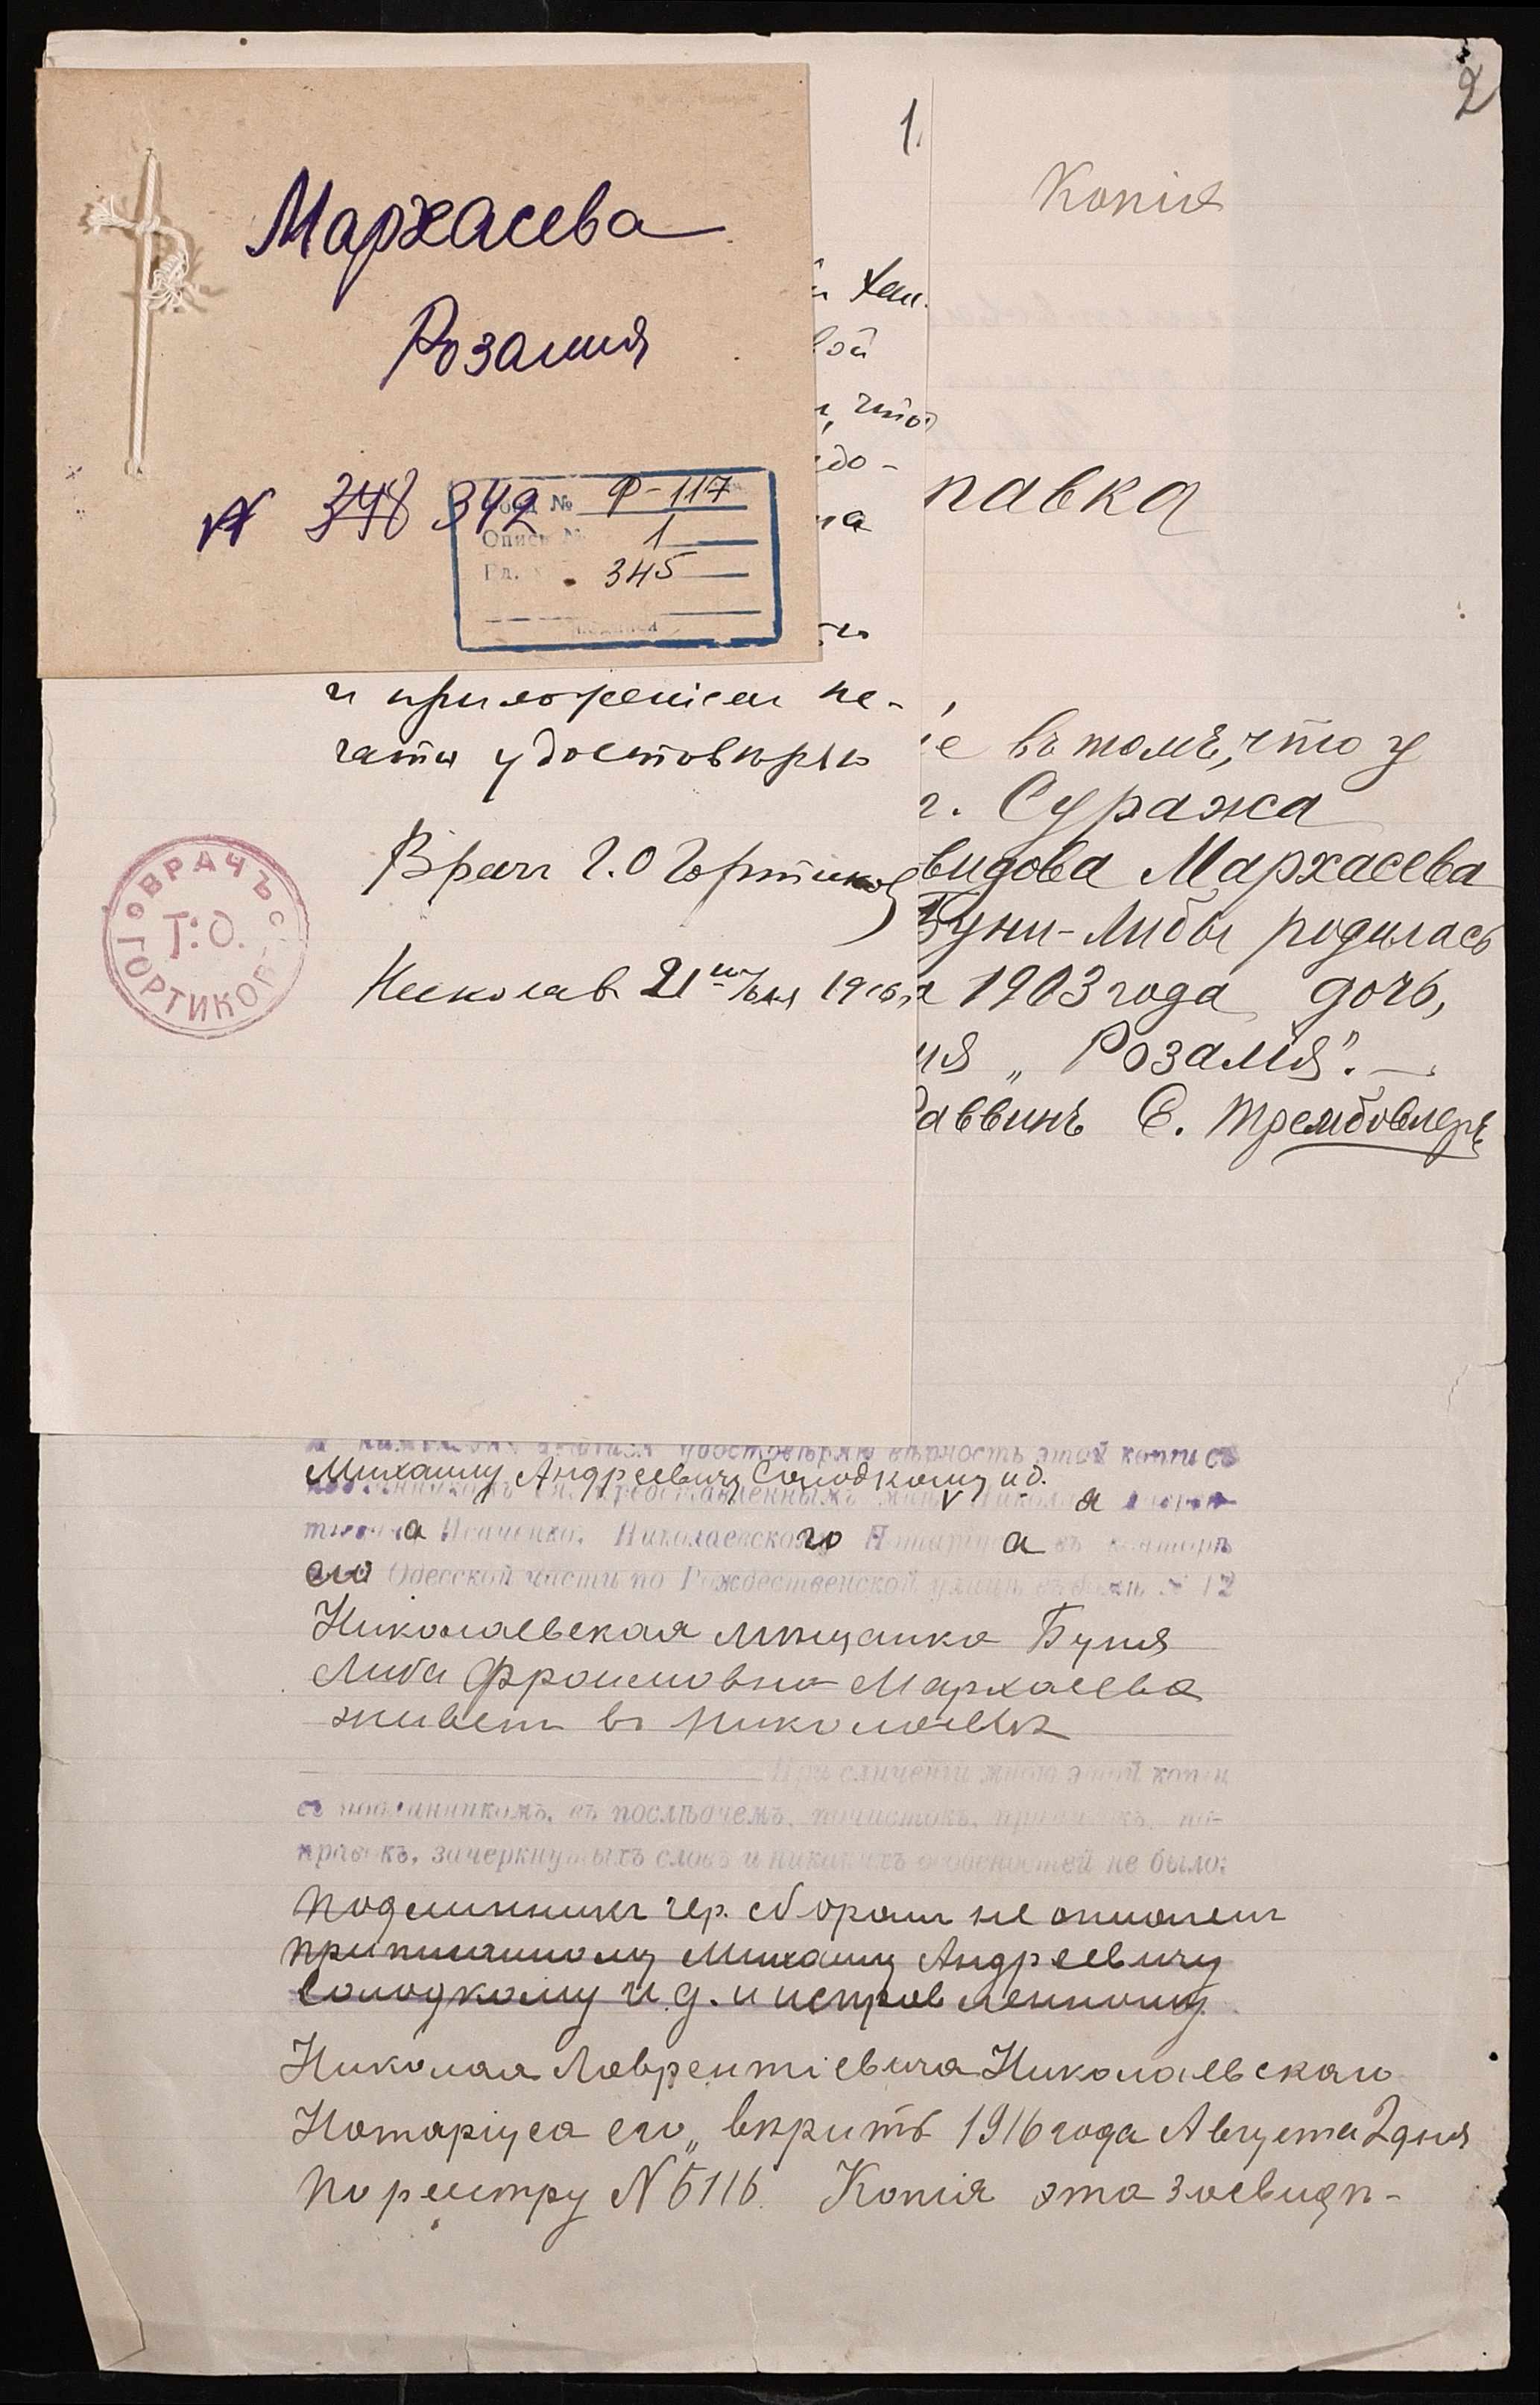 2
Мархасева
Розалия
№ 348 342
Фонд № Ф-117
Опись № 1
345
1.
й Хаи.
вой
, что
едо-
на
и приложеніем пе-
чати удостовѣряю
Врач Г.О Гортиков
Николаев 21
ВРАЧЪ
Г.О.
ГОРТИКОВ
Копія
павка
іе въ томъ, что у
г. Суража
видова Мархасева
Буни-Либы родилась
1903 года дочь,
мя „Розалія".
Раввинъ С. Трембовлеръ
удостовѣряю вѣрность этой копіи съ
Михаилу Андреевичу Солодкому и д.
Исаченко, Николаевского Нотаріуса въ конторѣ
его Одесской части по Рождественской улицѣ въ домѣ № 12
Николаевская мѣщанка Буня
Либа Фроимовна Мархасева
живет въ Николаевѣ
При сличеніи мною этой копіи
съ подлинникомъ, въ послѣднемъ, почистокъ, приписокъ, по-
правокъ, зачеркнутыхъ словъ и никакихъ особенностей не было:
Подлинникъ гер. сборомъ не оплоченъ
приписанному Михаилу Андреевичу
Солодкому и.д. и исправленному
Николая Лаврентіевича Николаевскаго
Нотаріуса его „вѣрить 1916 года Августа 2 дня
По реестру № 5116. Копія эта засвидѣ-